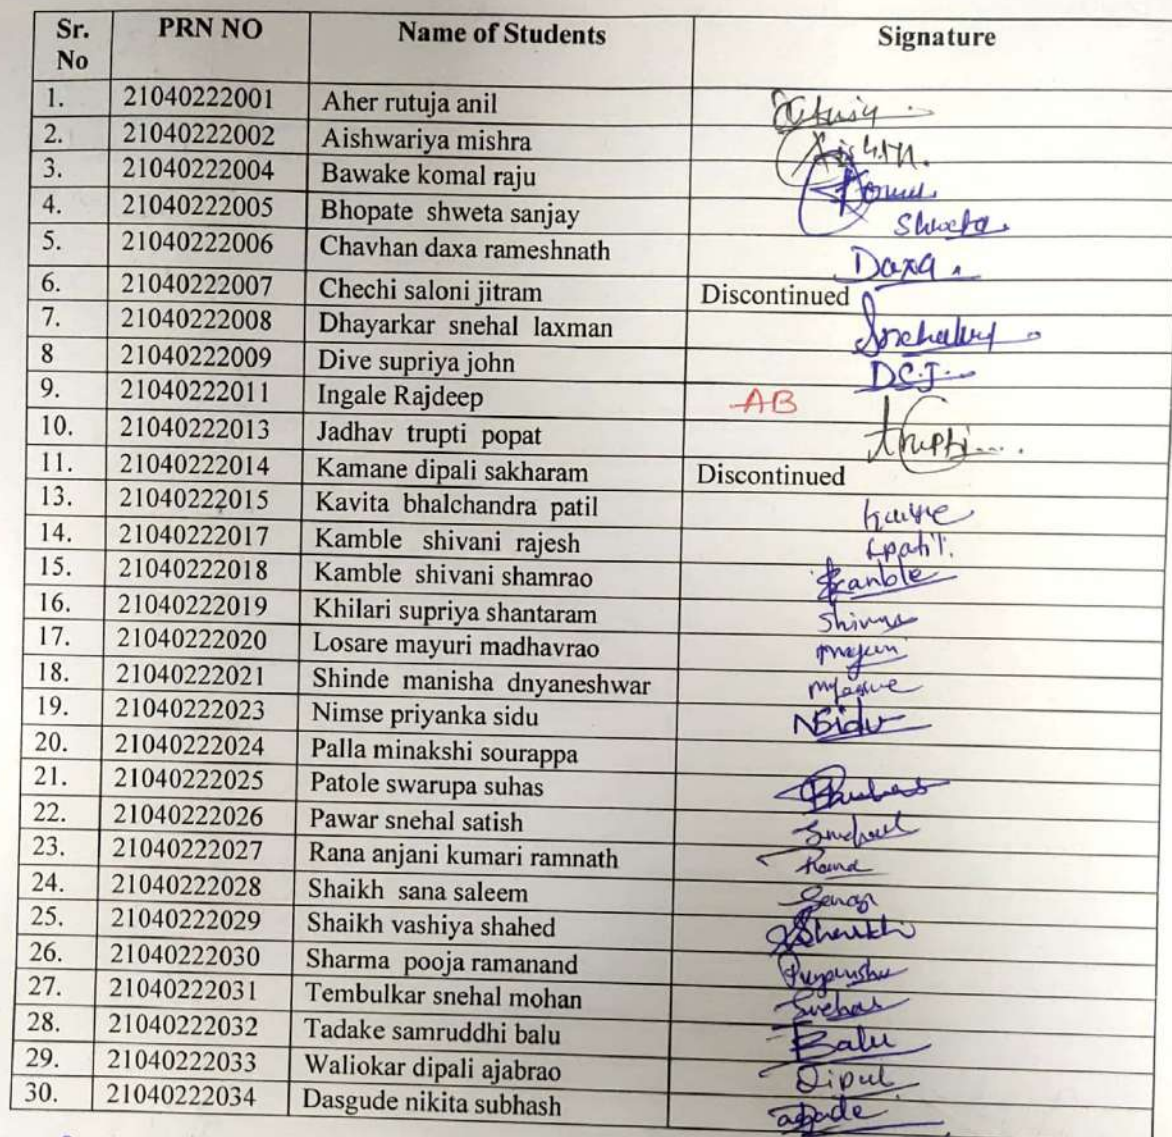 Sr. No PRN NO Name of Students Signature
1. 21040222001 Aher rutuja anil
2. 21040222002 Aishwariya mishra
3. 21040222004 Bawake komal raju
4. 21040222005 Bhopate shweta sanjay Shweta
5. 21040222006 Chavhan daxa rameshnath Daxa.
6. 21040222007 Chechi saloni jitram Discontinued
7. 21040222008 Dhayarkar snehal laxman
8 21040222009 Dive supriya john
9. 21040222011 Ingale Rajdeep AB
10. 21040222013 Jadhav trupti popat trupti....
11. 21040222014 Kamane dipali sakharam Discontinued
13. 21040222015 Kavita bhalchandra patil
14. 21040222017 Kamble shivani rajesh
15. 21040222018 Kamble shivani shamrao Kamble
16. 21040222019 Khilari supriya shantaram
17. 21040222020 Losare mayuri madhavrao
18. 21040222021 Shinde manisha dnyaneshwar
19. 21040222023 Nimse priyanka sidu NSidu
20. 21040222024 Palla minakshi sourappa
21. 21040222025 Patole swarupa suhas
22. 21040222026 Pawar snehal satish
23. 21040222027 Rana anjani kumari ramnath Rana
24. 21040222028 Shaikh sana saleem
25. 21040222029 Shaikh vashiya shahed
26. 21040222030 Sharma pooja ramanand
27. 21040222031 Tembulkar snehal mohan
28. 21040222032 Tadake samruddhi balu Balu
29. 21040222033 Waliokar dipali ajabrao
30. 21040222034 Dasgude nikita subhash